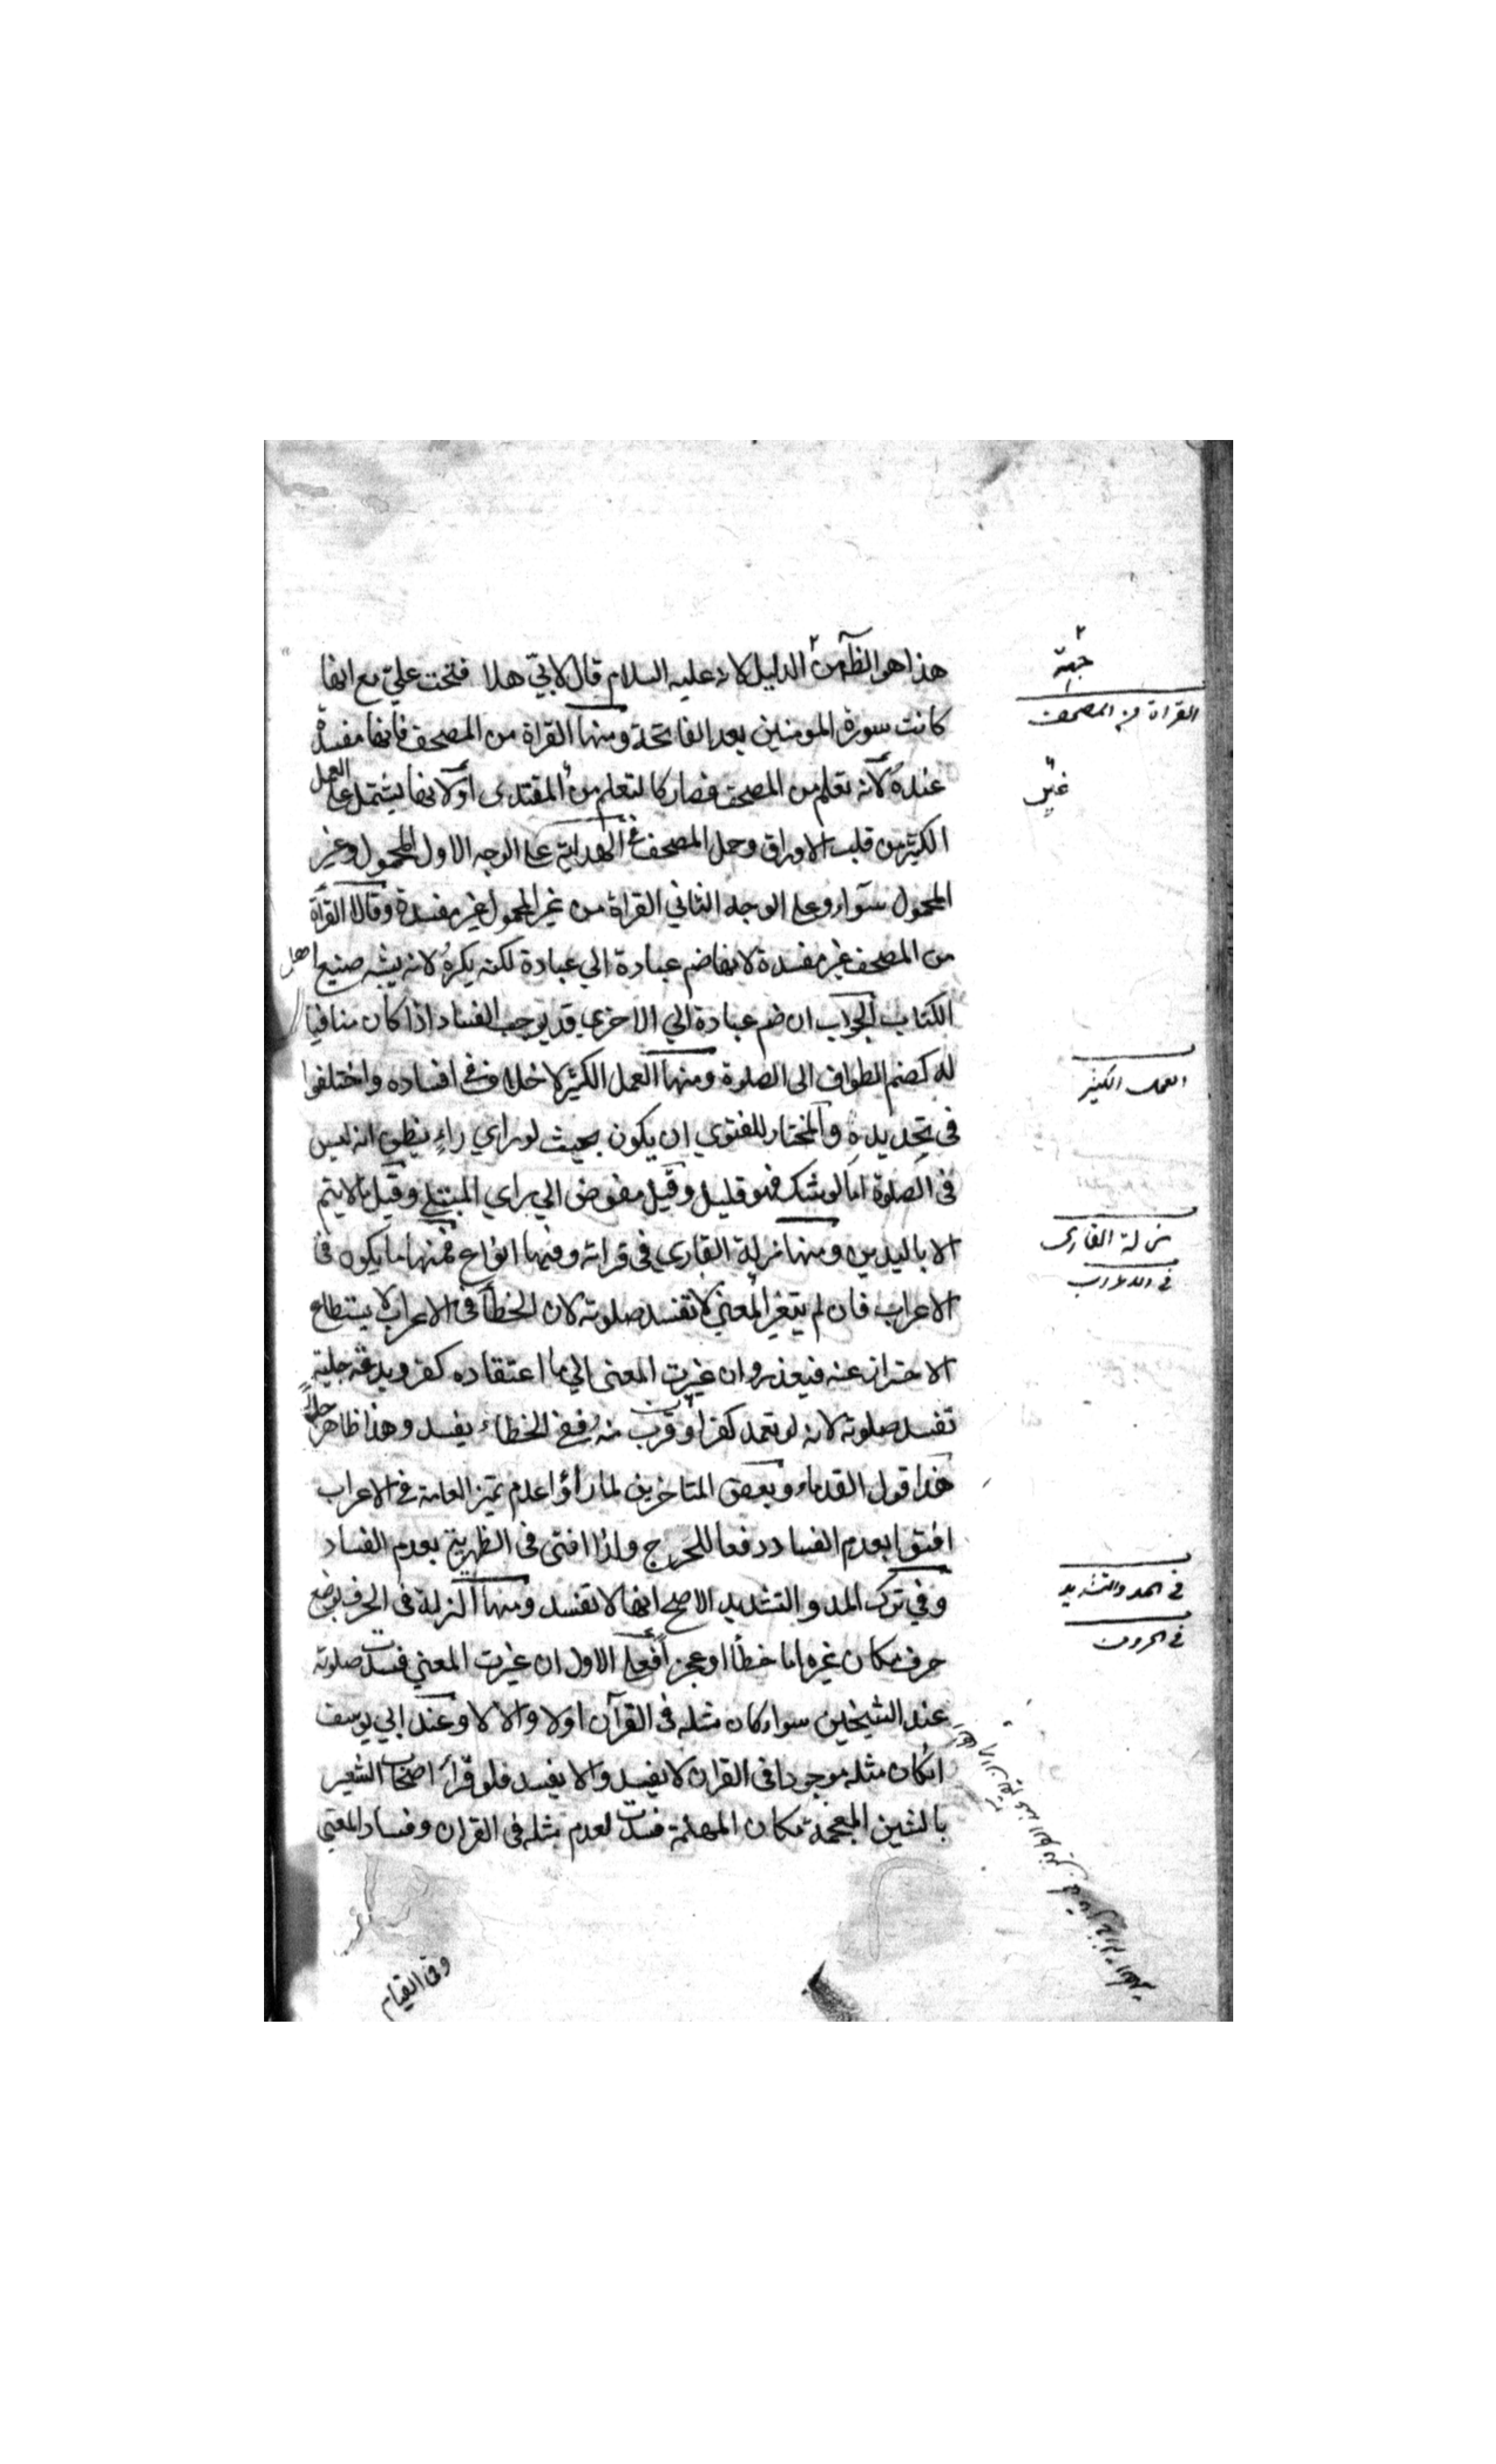 هذا هو الظاهر من الدليل لانه عليه السلام قال لابيّ هلا فتحت عليّ مع انها
كانت سورة المومنين بعد الفاتحة ومنها القراة من المصحف فانها مفسدة
عنده لانه تعلم من المصحف فصار كالتعلم من المقتدى او لانها يشتمل على العمل
الكثير من قلب الاوراق وحمل المصحف في الهداية على الوجه الاول المحمول وغير
المحمول سواء وعلى الوجه الثاني القراة من غير المحمول غير مفسدة وقالا القرأة
من المصحف غير مفسدة لانها ضم عبادة الي عبادة لكنه يكره لانه يشبه صنيع اهل
الكتاب الجواب ان ضم عبادة الي الاخري قد يوجب الفساد اذا كان منافيا
له كضم الطواف الى الصلوة ومنها العمل الكثير لا خلاف في افساده واختلفوا
في تحديده والمختار للفتوي ان يكون بحيث لو راي راءٍ يظن انه ليس
في الصلوة اما لو شك فهو قليل وقيل مفوض الي راي المبتلي وقيل ما لا يتم
الا باليدين ومنها زلة القاري في قراته وفيها انواع فمنها ما يكون في
الاعراب فان لم يتغير المعني لا تفسد صلوته لان الخطأ في الاعراب لا يستطاع
الاحتراز عنه فيعذر وان غيرت المعنى الي ما اعتقاده كفر
تفسد صلوته لانه لو تعمد كفر او قرب منه ففي الخطاء يفسد وهذا ظاهر
هذا قول القدماء وبعض المتاخرين لما رأوا عدم تميز العامة في الاعراب
افتوا بعدم الفساد دفعا للحرج ولذا افتى في الظهرية بعدم الفساد
وفي ترك المد والتشديد الاصح انها لا تفسد ومنها الزلة في الحرف بوضع
حرف مكان غيره اما خطأ او عجزا فعلى الاول ان غيرت المعني فسدت صلوته
عند الشيخين سواء كان مثله في القرآن اولا والا لا وعند ابي يوسف
انكان مثله موجودا في القران لا يفسد والا يفسد فلو قرأ اصحاب الشعير
بالشين المعجمة مكان المهملة فسدت لعدم مثله في القران وفساد المعني
وفي القيام
جهة
القراة من المصحف
غير
العمل الكثير
زلة القارى
في الاعراب
في المد والتشديد
في الحروف